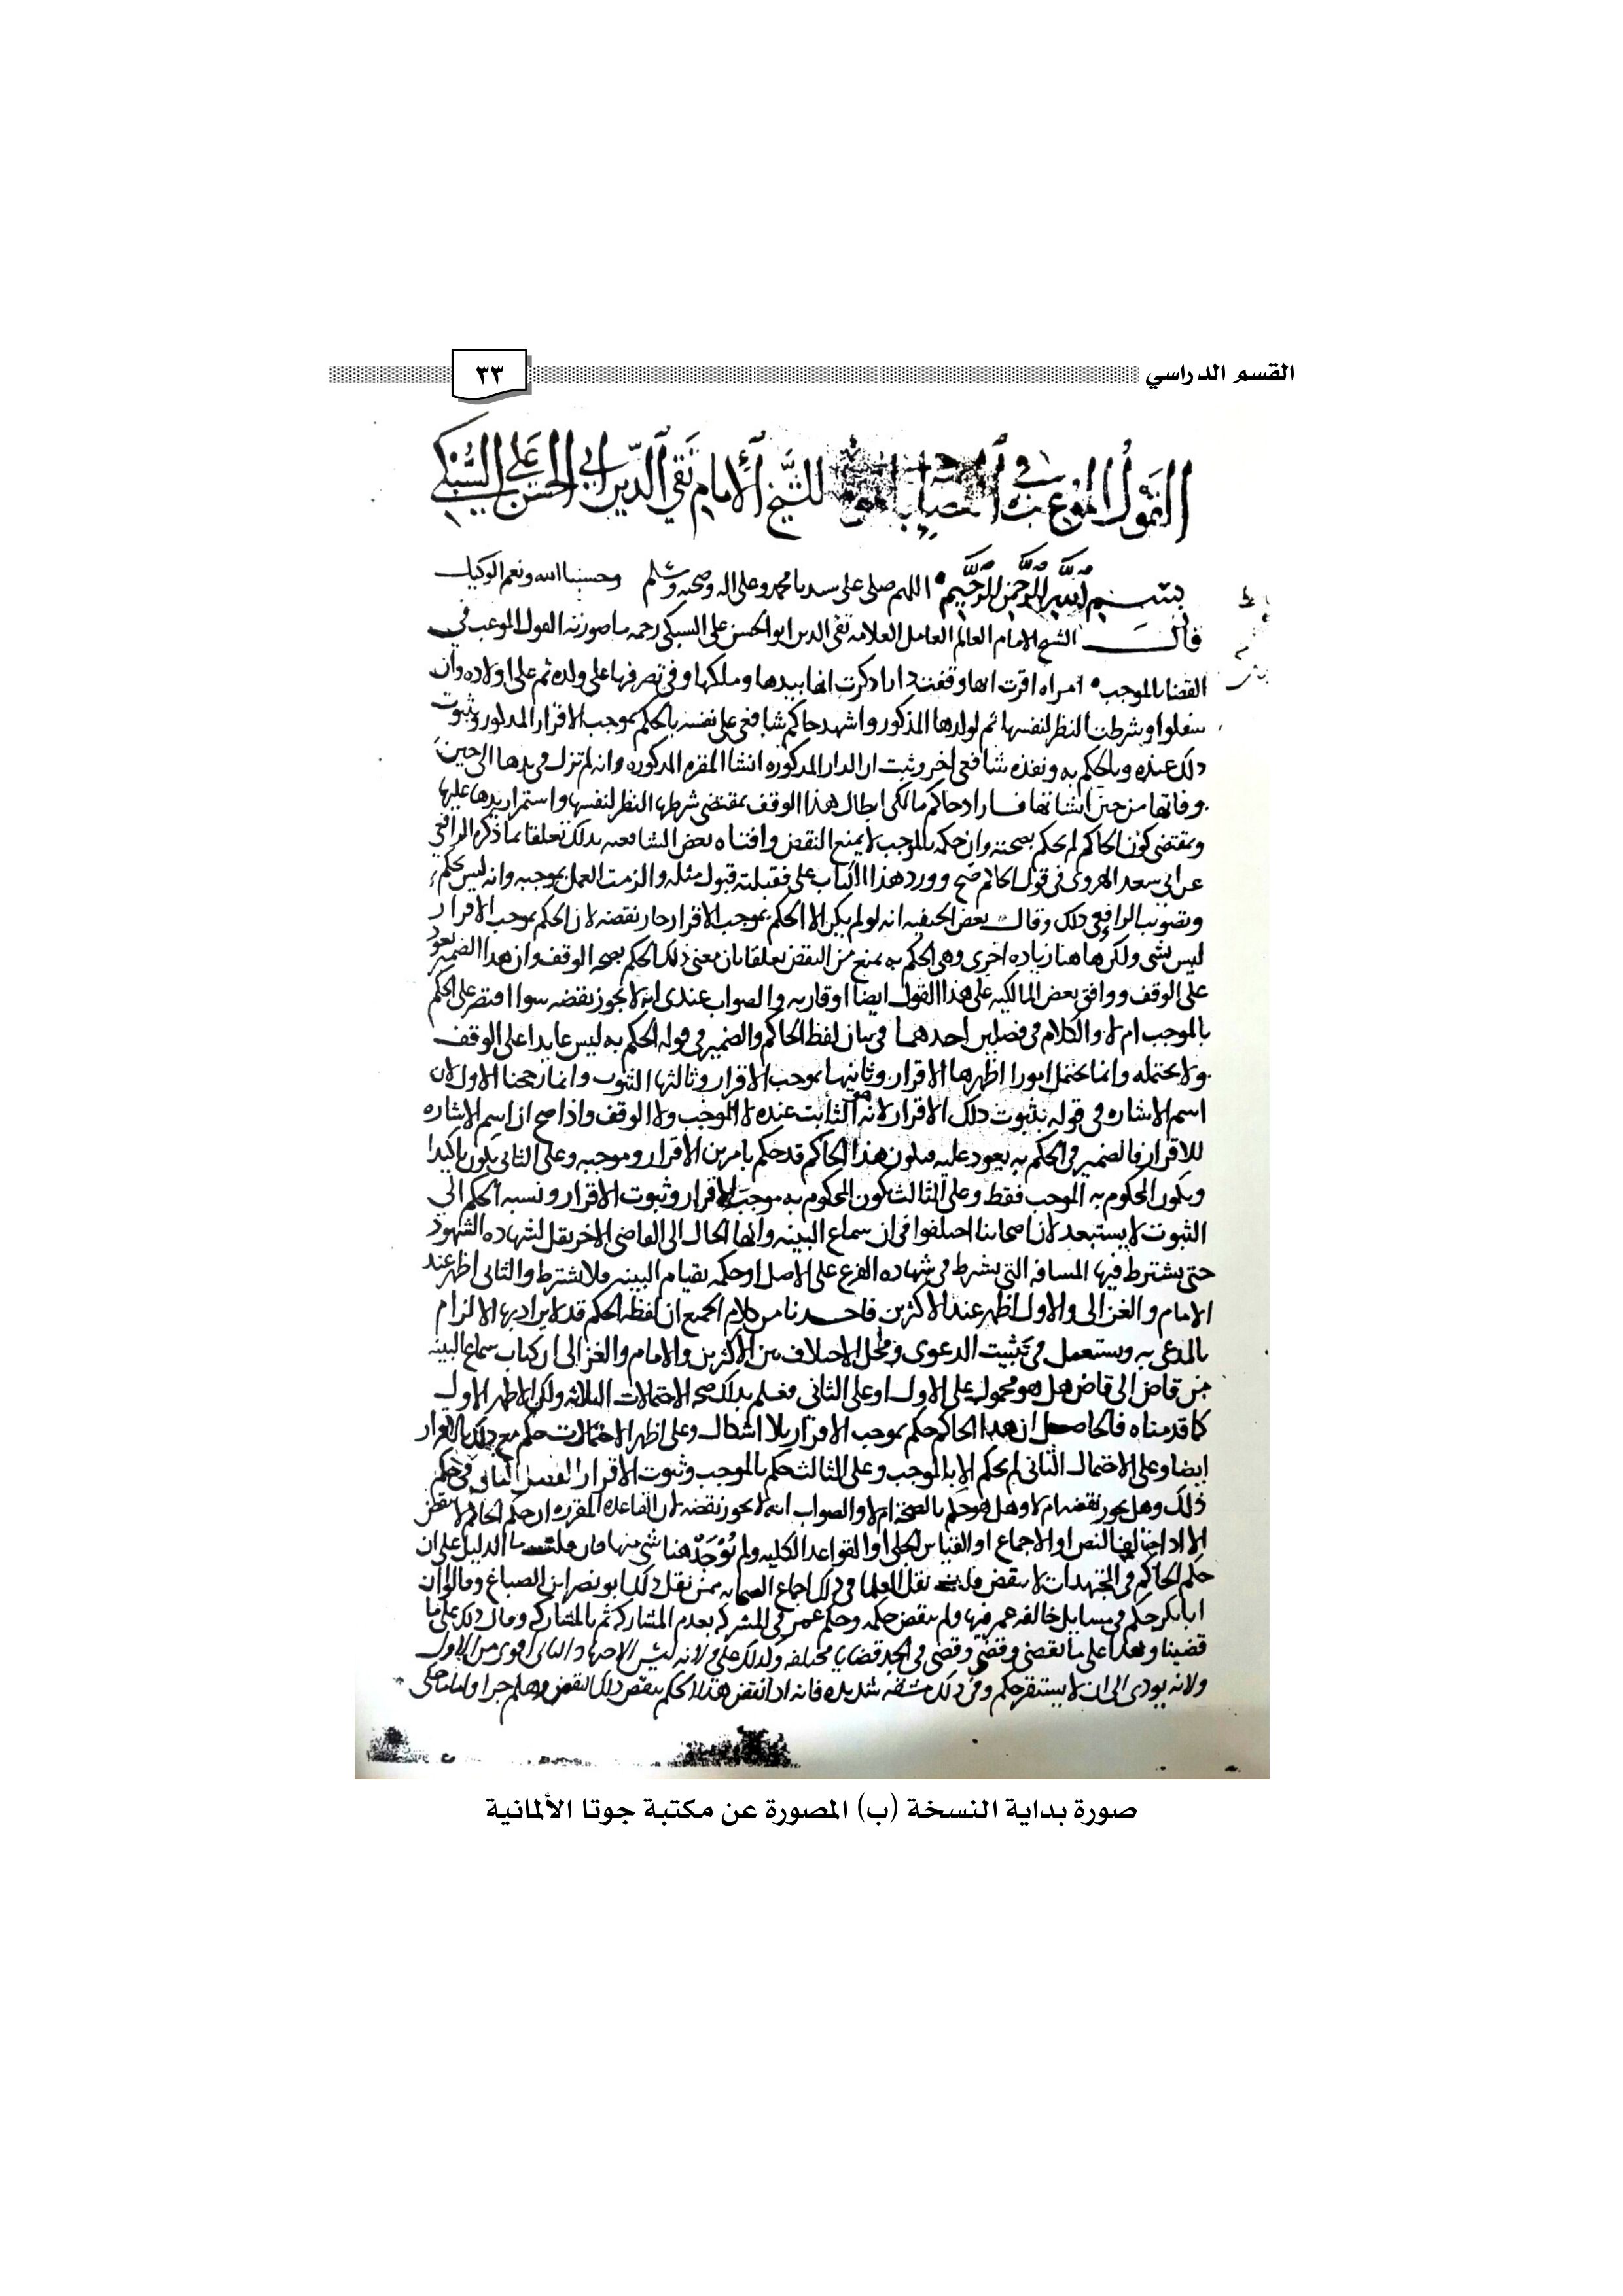 القسم الدراسي
٣٣
القول الموعب في القضاء بالموجب للشيخ الامام تقي الدين ابي الحسن علي السبكي
بسم الله الرحمن الرحيم اللهم صلى على سيدنا محمد وعلى اله وصحبه وسلم وحسبنا الله ونعم الوكيل
قال الشيخ الامام العالم العامل العلامه تقى الدين ابو الحسن على السبكى رحمه ما صورته القول الموعب في
القضا بالموجب امراه اقرت انها وقفت دارا ذكرت انها بيدها وملكها وفى تصرفها على ولده ثم على اولاده وان
سفلوا وشرطت النظر لنفسها ثم لولدها المذكور واشهد حاكم شافعى على نفسه بالحكم بموجب الاقرار المذكور وثبوت
ذلك عنده وبالحكم به ونفذه شافعى اخر وثبت ان الدار المذكوره انشا المقره المذكوره وانه لم تزل فى يدها الى حين
وفاتها من حين انشاتها فاراد حاكم مالكى ابطال هذا الوقف بمقتضى شرطها النظر لنفسها واستمرار يدها عليها
وبمقتضى كون الحاكم لم يحكم بصحته وان حكمه بالموجب لا يمنع النقض وافتاه بعض الشافعيه بذلك تعلقا بما ذكره الرافعى
عن ابى سعد الهروى فى قول الحاكم صح وورد هذا الكتاب على فقبلته قبول مثله والزمت العمل بموجبه وانه ليس بحكم
وتصويب الرافعى ذلك وقال بعض الحنفيه انه لو لم يكن الا الحكم بموجب الاقرار جاز نقضه لان الحكم بموجب الاقرار
ليس بشى ولكن هاهنا زياده اخرى وهى الحكم به يمنع من النقض تعلقا بان معنى ذلك الحكم بصحه الوقف وان هذا الضمير يعود
على الوقف ووافق بعض المالكيه على هذا القول ايضا او قاربه والصواب عندى انه لا يجوز نقضه سوا اقتصر على الحكم
بالموجب ام لا والكلام فى فصلين احدهما فى بيان لفظ الحاكم والضمير فى قوله الحكم به ليس عايدا على الوقف
ولا يحتمله وانما يحتمل امورا اظهرها الاقرار وثانيها بموجب الاقرار وثالثها الثبوت وانما رجحنا الاول لان
اسم الاشاره فى قوله بثبوت ذلك الاقرار لانه الثابت عنده لا الموجب ولا الوقف واذا صح ان اسم الاشاره
للاقرار فالضمير فى الحكم به يعود عليه فيكون هذا الحاكم قد حكم بامرين الاقرار وموجبه وعلى الثانى يكون تاكيدا
ويكون المحكوم به الموجب فقط وعلى الثالث يكون المحكوم به موجب الاقرار وثبوت الاقرار ونسبه الحكم الى
الثبوت لا يستبعد لان اصحابنا اختلفوا فى ان سماع البينه وانها الحال الى القاضى الاخر نقل لشهاده الشهود
حتى يشترط فيها المسافه التى يشترط فى شهاده الفرع على الاصل او حكمه بقيام البينه فلا يشترط والثانى اظهر عند
الامام والغزالى والاول اظهر عند الاكثرين فاخذنا من كلام الجميع ان لفظه الحكم قد لا يراد بها الالزام
بالمدعى به ويستعمل فى تثبيت الدعوى ومحل الاختلاف بين الاكثرين والامام والغزالى ان كتاب سماع البينه
من قاض الى قاض هل هو محمول على الاول او على الثانى فعلم بذلك صحه الاحتمالات الثلاثه ولكن الاظهر الاول
كما قدمناه فالحاصل ان هذا الحاكم حكم بموجب الاقرار بلا اشكال وعلى اظهر الاحتمالات حكم مع ذلك بالاقرار
ايضا وعلى الاحتمال الثانى لم يحكم الا بالموجب وعلى الثالث حكم بالموجب وثبوت الاقرار الفصل الثانى فى حكم
ذلك وهل يجوز نقضه ام لا وهل هو حكم بالصحه ام لا والصواب انه لا يجوز نقضه لان القاعده المقرره ان حكم الحاكم لا ينقض
الا اذا خالف النص او الاجماع او القياس الجلى او القواعد الكليه ولم يوجد هنا شى منها فان قلت ما الدليل على ان
حكم الحاكم فى المجتهدات لا ينقض قلت نقل العلما فى ذلك اجماع الصحابه ممن نقل ذلك ابو نصر ابن الصباغ وقالوا ان
ابا بكر حكم فى مسايل خالفه عمر فيها ولم ينقض حكمه وحكم عمر فى المشركه بعدم المشاركه ثم بالمشاركه وقال ذلك على ما
قضينا وهذا على ما نقضى وقضى فى الجد قضايا مختلفه وكذلك على ولانه ليس الاجتهاد الثانى اقوى من الاول
ولانه يودى الى ان لا يستقر حكم وفى ذلك مشقه شديده فانه اذا نقض هذا الحكم ينقض ذلك النقض وهلم جرا
صورة بداية النسخة (ب) المصورة عن مكتبة جوتا الألمانية